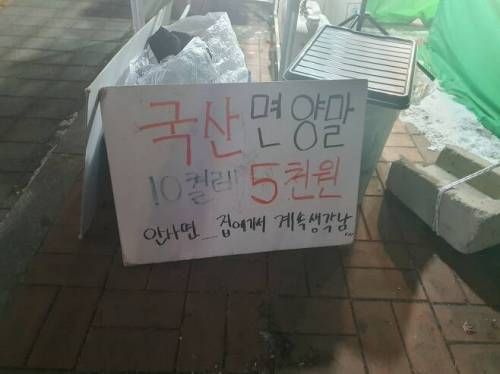 국산 면양말
10켤레 5천원
안사면_집에가서 계속생각남